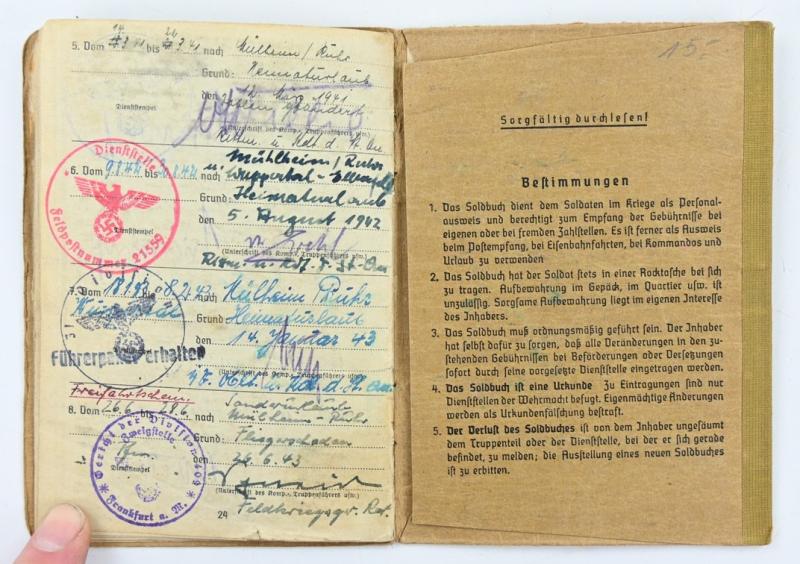 5. Vom 14.3.41 bis 26.3.41 nach Mülheim/Ruhr
Grund: Heimaturlaub
den 12. März 1941
Dienststempel
(Unterschrift des Komp.-, Truppenführers usw.)
Dienststelle
Feldpostnummer 21559
6. Vom 9.8.42 bis nach Mühlheim/Ruhr
u. Wuppertal-
Grund: Heimaturlaub
den 5. August 1942
Dienststempel
(Unterschrift des Komp.-, Truppenführers usw.)
7. Vom 18.1.43 bis 8.2.43 nach Mülheim Ruhr
Wuppertal
Grund: Heimaturlaub
den 14. Januar 43
Führerpaket erhalten
Komp.-, Truppenführers usw.)
Freifahrtschein
8. Vom 26.6. bis 28.6. nach Sonderurlaub
Mülheim-Ruhr
Grund: Fliegerschaden
den 26.6.43
Dienststempel
Gericht der Division 409
Zweigstelle
Frankfurt a. M.
(Unterschrift des Komp.-, Truppenführers usw.)
24
Feldkriegsger. Rat.
15.-
Sorgfältig durchlesen!
Bestimmungen
1. Das Soldbuch dient dem Soldaten im Kriege als Personal-
ausweis und berechtigt zum Empfang der Gebührnisse bei
eigenen oder bei fremden Zahlstellen. Es ist ferner als Ausweis
beim Postempfang, bei Eisenbahnfahrten, bei Kommandos und
Urlaub zu verwenden
2. Das Soldbuch hat der Soldat stets in einer Rocktasche bei sich
zu tragen. Aufbewahrung im Gepäck, im Quartier usw. ist
unzulässig. Sorgsame Aufbewahrung liegt im eigenen Interesse
des Inhabers.
3. Das Soldbuch muß ordnungsmäßig geführt sein. Der Inhaber
hat selbst dafür zu sorgen, daß alle Veränderungen in den zu-
stehenden Gebührnissen bei Beförderungen oder Versetzungen
sofort durch seine vorgesetzte Dienststelle eingetragen werden.
4. Das Soldbuch ist eine Urkunde Zu Eintragungen sind nur
Dienststellen der Wehrmacht befugt. Eigenmächtige Änderungen
werden als Urkundenfälschung bestraft.
5. Der Verlust des Soldbuches ist von dem Inhaber ungesäumt
dem Truppenteil oder der Dienststelle, bei der er sich gerade
befindet, zu melden; die Ausstellung eines neuen Soldbuches
ist zu erbitten.